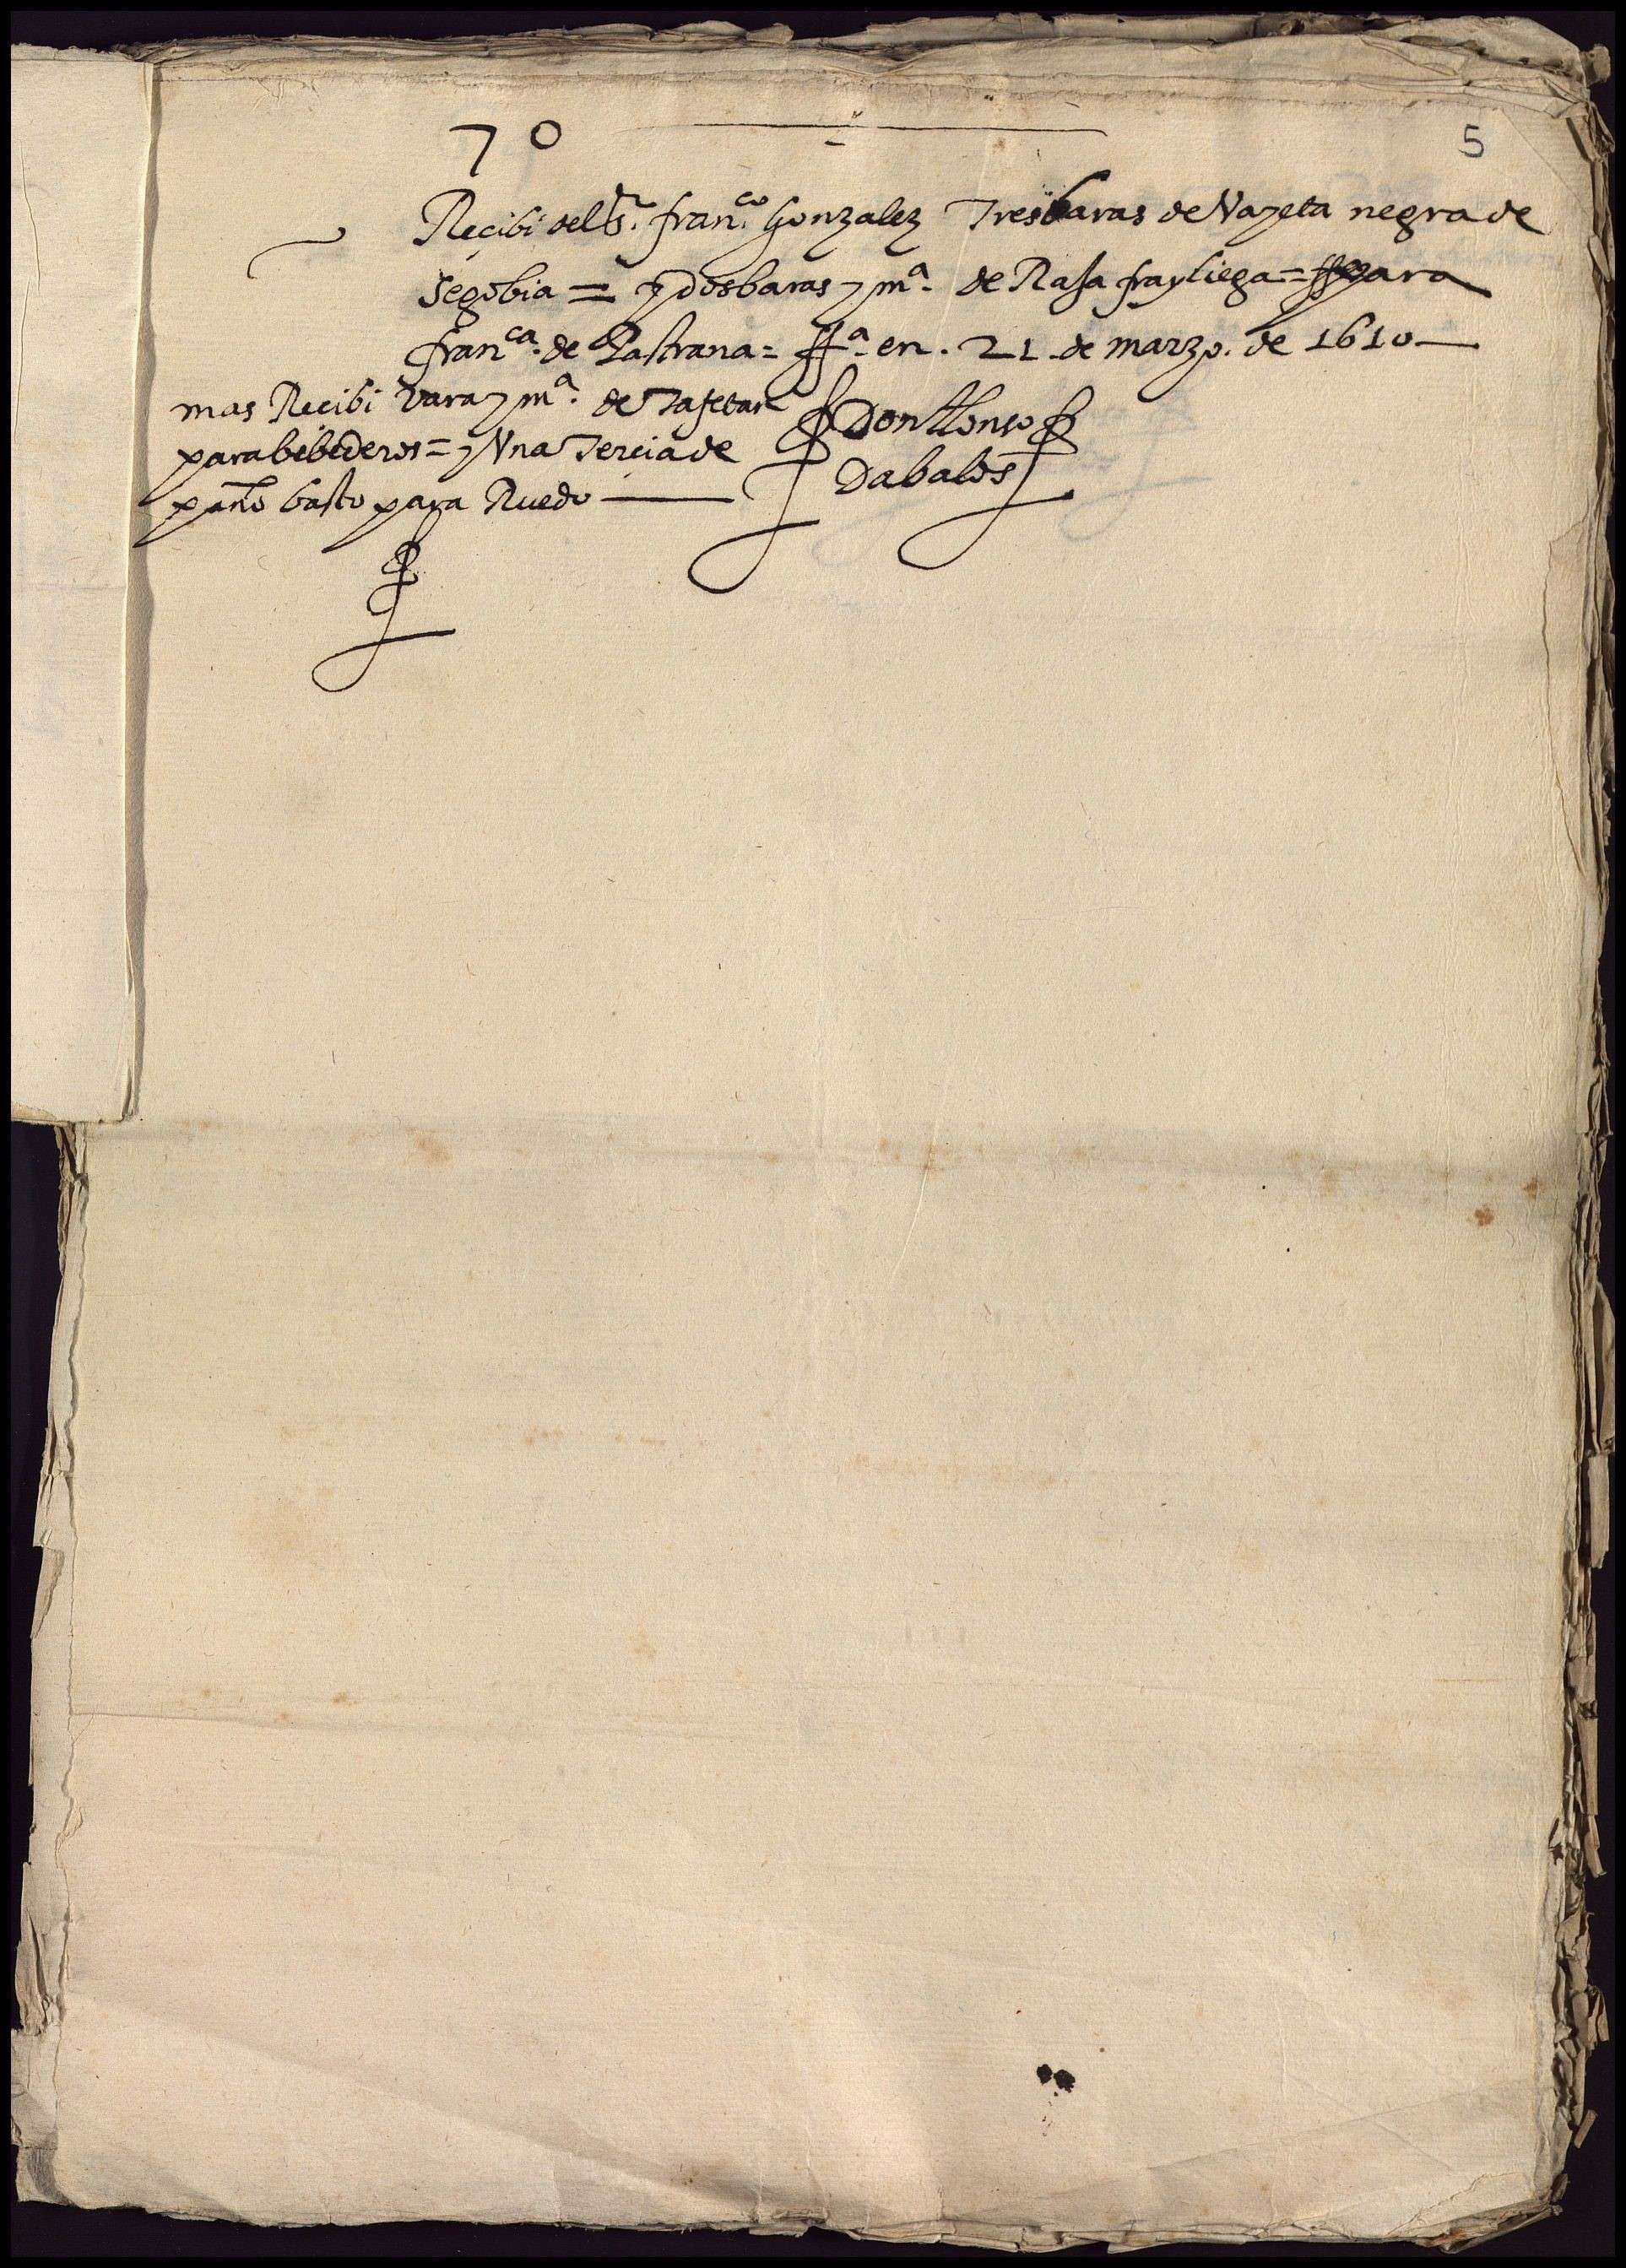 70
5
Recibi del Sr. franco. Gonzalez Tres baras de Vayeta negra de
Segobia = y dos baras y ma. de Rasa frayliega = para
franca. de Pastrana = ffa. en . 21 de marzo. de 1610
mas Recibi vara y ma. de Tafetan
para bebederos = y Una Tercia de
paño basto para Ruedo
Don Alonso
Dabalos